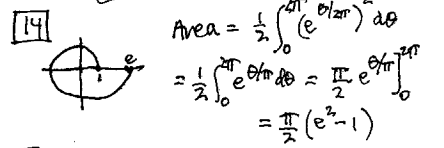 14
Area = 1/2 ∫₀^2π (e^θ/2π)² dθ
= 1/2 ∫₀^2π e^θ/π dθ = π/2 e^θ/π ]₀^2π
= π/2 (e² - 1)
e
1